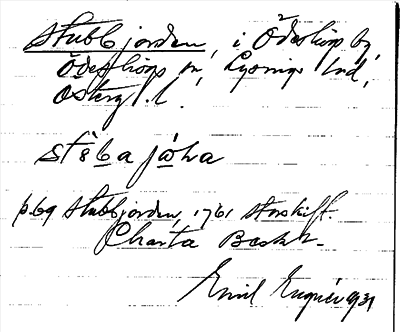 Stubbjorden, i Ödeshögs by,
Ödeshögs sn, Lysings hd,
Österg. l.
stèba jola
på stubbjorden, 1761 storskift.
Charta Beskr.
Emil Engnér 1931